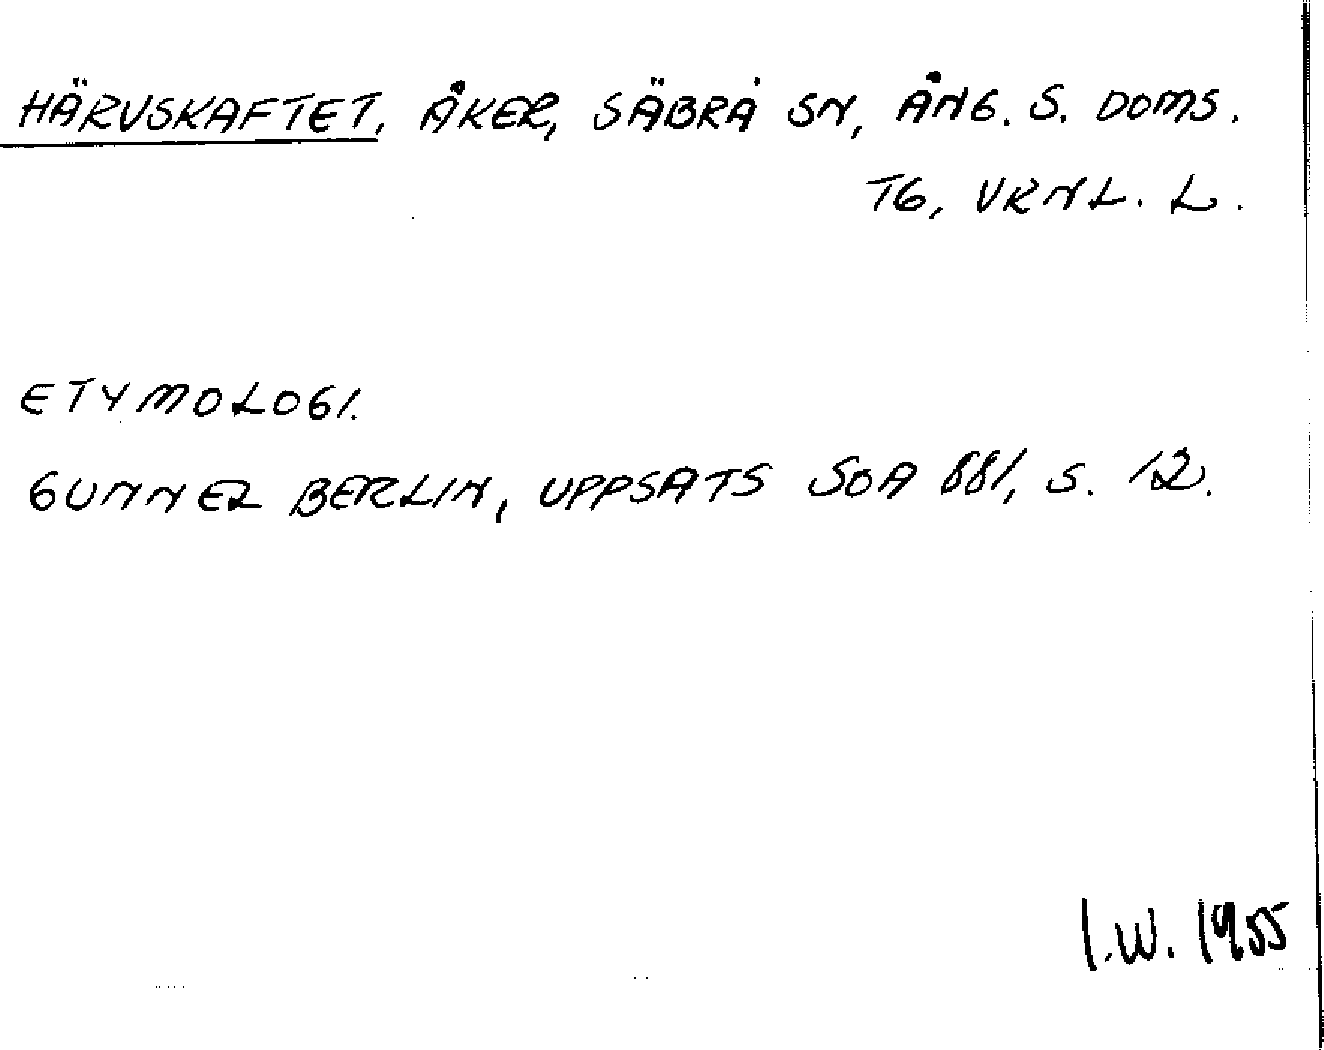 HÄRVSKAFTET, ÅKER, SÄBRÅ SN, ÅNG. S. DOMS.
TG, VRNL. L.
ETYMOLOGI.
GUNNEL BERLIN, UPPSATS SOA 881, S. 12.
I.W. 1955